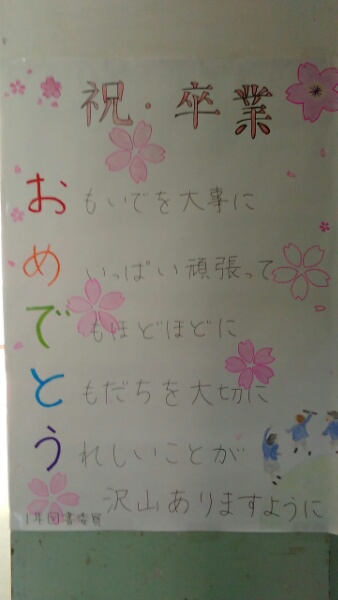 祝・卒業
おもいでを大事に
めいっぱい頑張って
でもほどほどに
ともだちを大切に
うれしいことが
沢山ありますように
1年図書委員